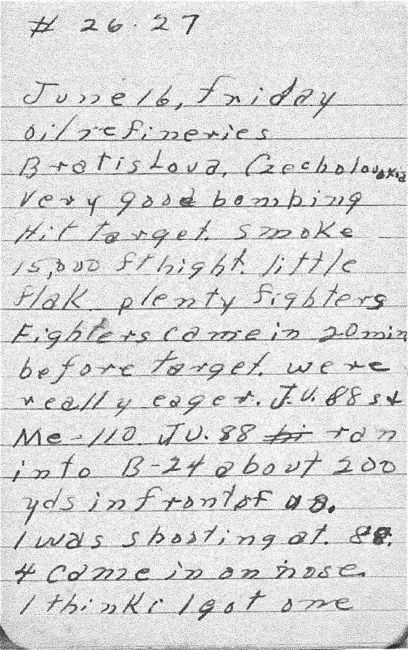 # 26.27
June 16, friday
oil refineries
Bratislova, Czecholovakia
Very good bombing
Hit target. smoke
15,000 ft hight. little
flak plenty fighters
Fighters came in 20 min
before target. were
really eager. J.U. 88s &
Me-110. JU. 88 hi ran
into B-24 about 200
yds in front of us.
I was shooting at. 88.
4 came in on nose.
I think i I got one